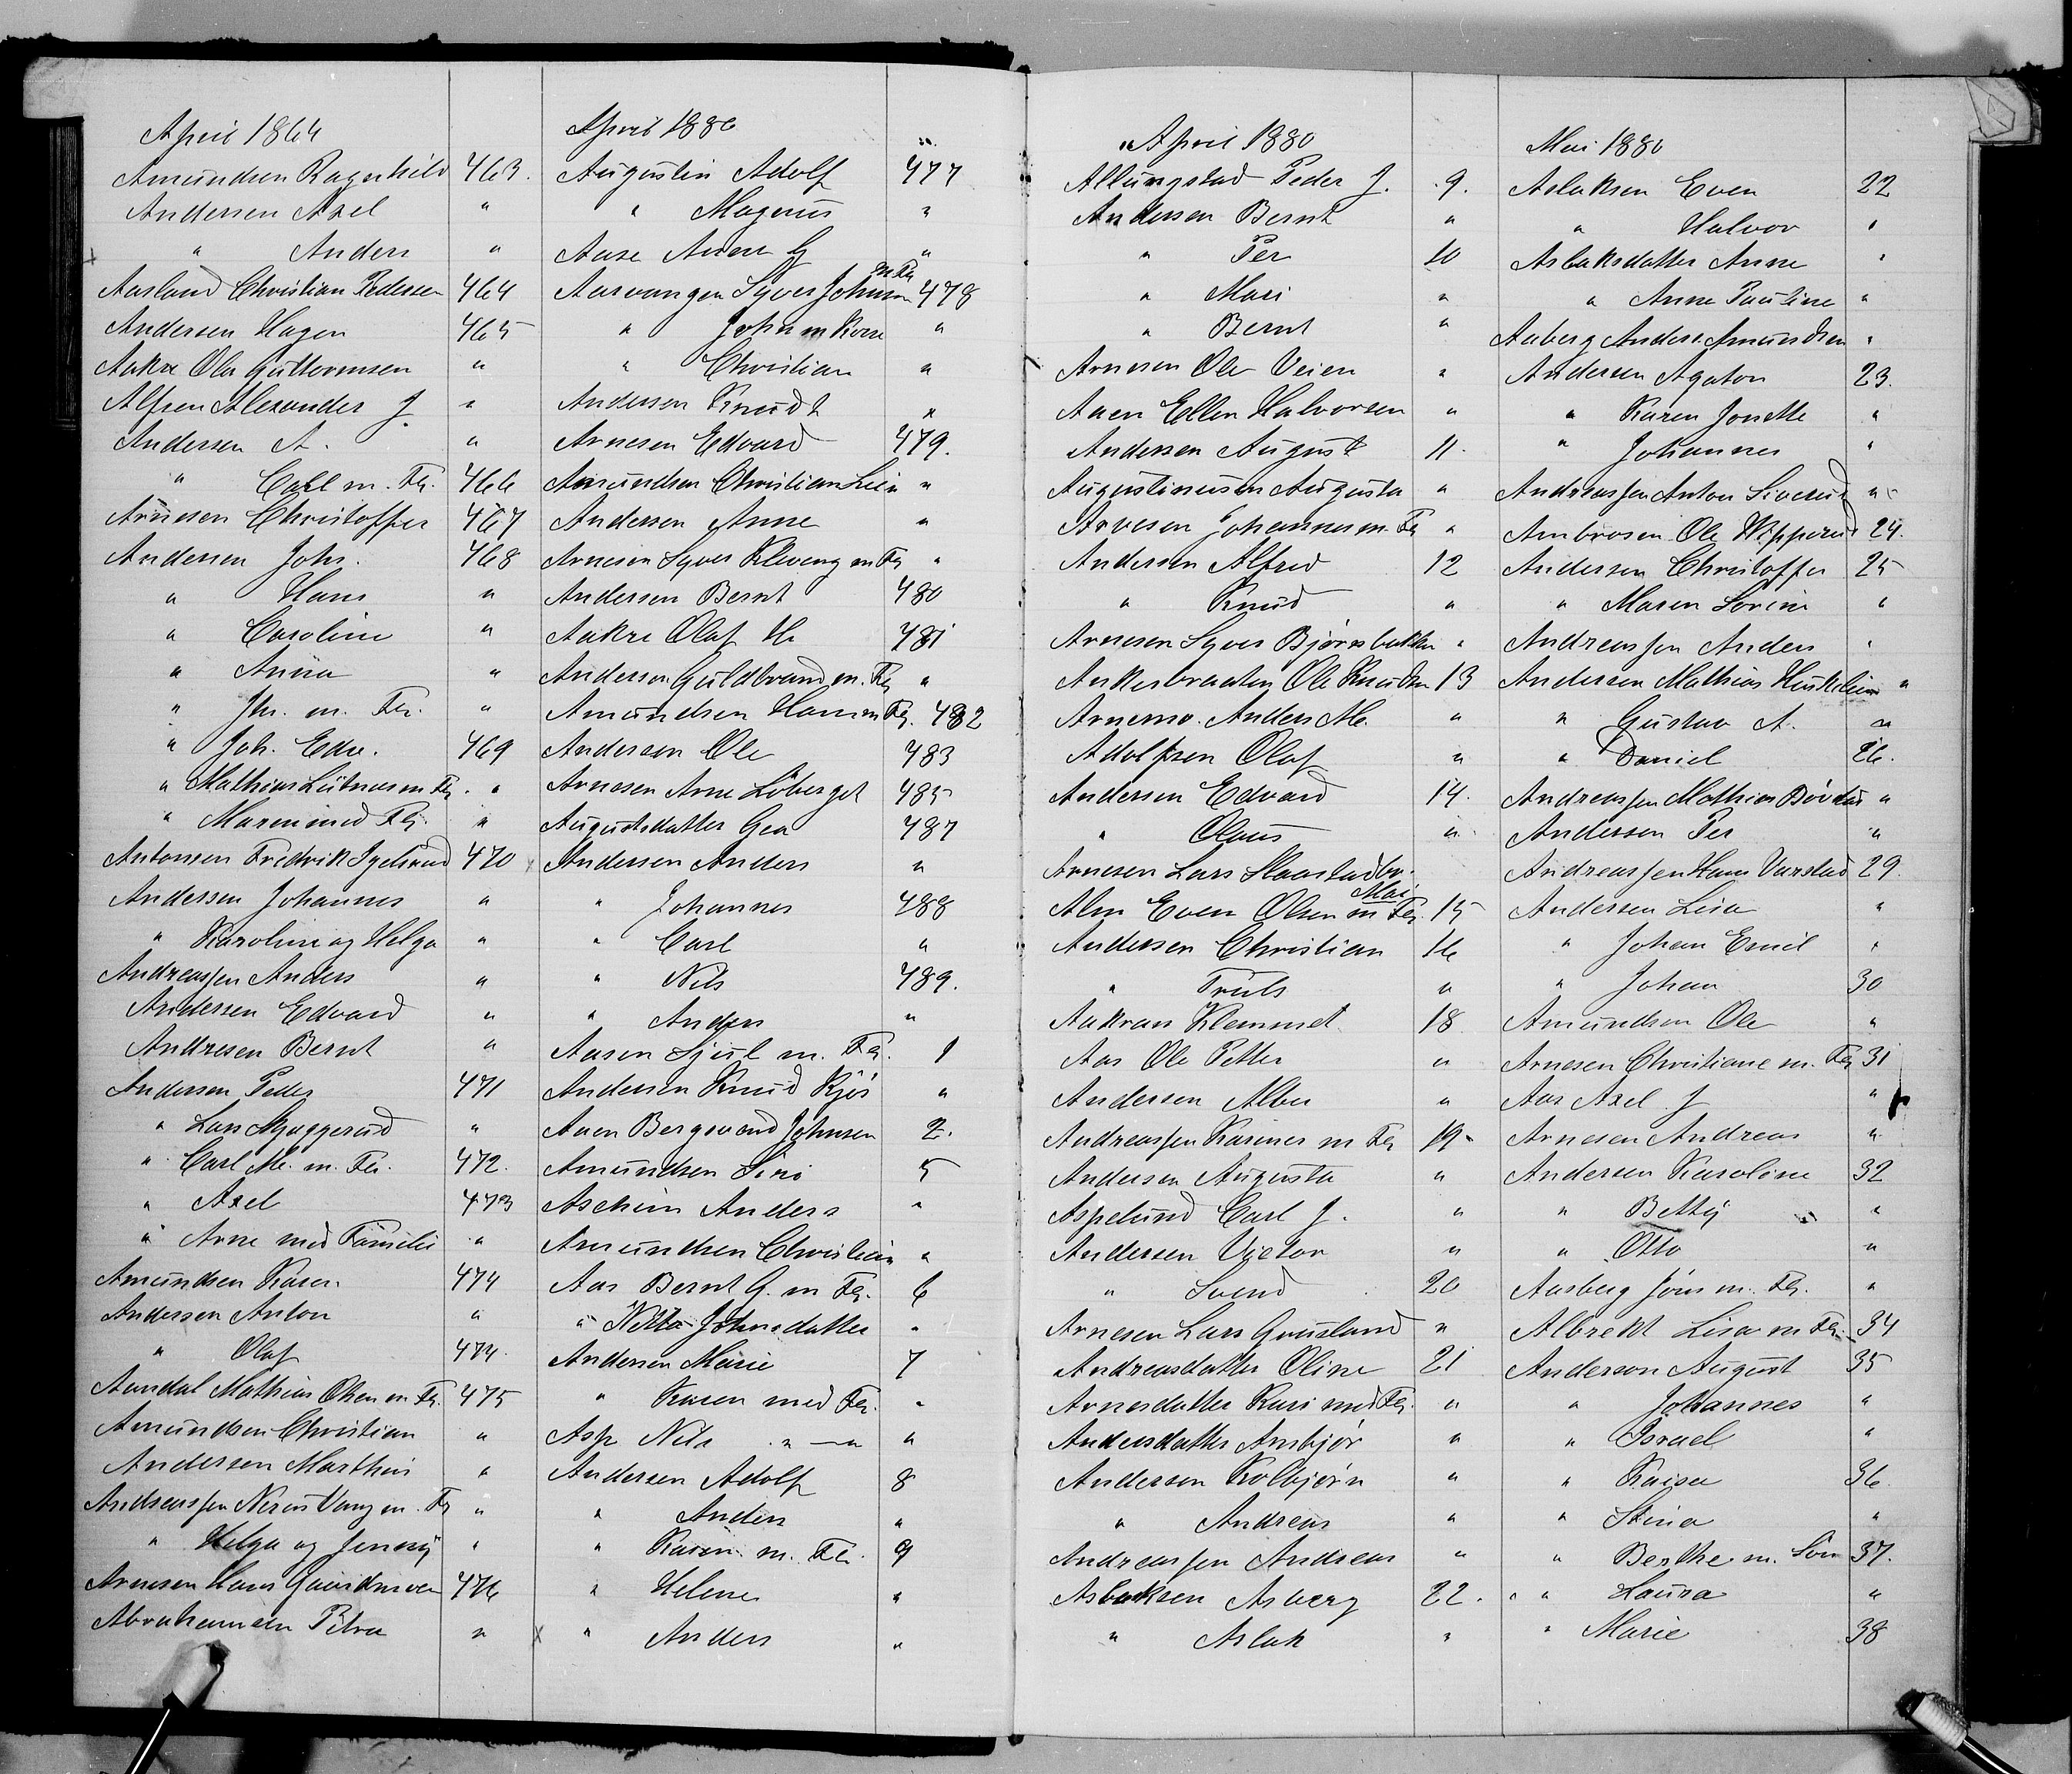 April 1864
Amundsen Ragnhild 463.
Andersen Axel "
" Anders "
Aasland Christian Pedersen 464
Andersen Hagen 465
Aakre Ole Guttormsen "
Alfsen Alexander J. "
Andersen A. "
" Carl m. Fa. 466
Arnesen Christoffer 467
Andersen Johs. 468
" Hans "
" Caroline "
" Anna "
" Jhs. m. Fa. "
" Joh. Edv. 469
" Mathias m Fa. "
" Maren med Fa. "
Antonsen Fredrik 470
Andersen Johannes "
" Karoline og Helga "
Andreassen Anders "
Andersen Edvard "
Andresen Bernt "
Andersen Peder 471
" Lars Myggerud "
" Carl M. m. Fa. 472.
" Axel 473
" Arne med Familie "
Amundsen Karen 474
Andersen Anton "
" Olaf 474.
Aamdal Mathias Olsen m Fa. 475
Amundsen Christian "
Andersen Marthin "
Andreassen Vang m. Fa "
" Helga og Jenny "
Arnesen Hans 476
Abrahamsen Petra "
April 1880
Augustin Adolf 477
" Magnus "
Aase Anne G "
Aarvangen Syver Johnsen m Fa 478
" John m Kone "
" Christian "
Andersen Knudt "
Arnesen Edvard 479.
Amundsen Christian Lie "
Andersen Anne "
Arnesen Syver Kleveng m Fa "
Andersen Bernt 480
Aakre Olaf H. 481
Andersen Guldbrand m. Fa "
Amundsen Hans m Fa. 482
Andersen Ole 483
Arnesen Arne Löberget 485
Augustsdatter Gea 487
x Andersen Anders "
" Johannes 488
" Carl "
" Nils 489.
" Anders "
Aasen Sjul m. Fa. 1
Andersen Knud Kjös "
Aaen Bergsvend Johnsen 2.
Amundsen Siri 5
Aschim Anders "
Amundsen Christian "
Aas Bernt G. m Fa. 6
" Johnsdatter "
Andersen Marie 7
" Karen med Fa. "
Asp Nils " — " "
Andersen Adolf 8
" Anders "
" Karen m. Fa. 9
" Helene "
x " Anders "
April 1880
Allungstad Peder J. 9.
Andersen Bernt "
" Per 10
" Mari "
" Bernt "
Arnesen Ole Veien "
Aaen Ellen Halvorsen "
Andersen August 11.
Augustinusen Augusta "
Arvesen Johannes m. Fa "
Andersen Alfred 12
" Knud "
Arnesen Syver Björnsbakken "
Ankerbraaten Ole Knudsen 13
Arnemo. Anders M. "
Adolfsen Olaf "
Andersen Edvard 14.
" Olaus "
Arnesen Lars
Mai
Alm Even Olsen m Fa. 15
Andersen Christian 16
" Truls "
Aakran Klemmet 18
Aas Ole Petter "
Andersen Albu "
Andreassen Karines m Fa 19.
Andersen Augusta "
Aspelund Carl J. "
Andersen Victor "
" Svend 20
Arnesen Lars Grusland "
Andreasdatter Oline 21
Arnesdatter Kari med Fa. "
Andersdatter Ambjör "
Andersen Kolbjörn "
" Andreas "
Andreassen Andreas "
Aslaksen Asberg 22.
" Aslak "
Mai 1880
Aslaksen Even 22
" Halvor "
Aslaksdatter Anne "
" Anne Pauline "
Aaberg Anders Amundsen "
Andersen Agaton 23.
" Karen Jonette "
" Johannes "
Andreassen Anton Siverud "
Ambrosen Ole 24.
Andersen Christoffer 25
" Maren Sorine "
Andreassen Anders "
Andersen Mathias "
" Gustav A. "
" Daniel 26.
Andreassen Mathias "
Andersen Per "
Andreassen Hans Varstad 29.
Andersen Lisa "
" Johan Emil "
" Johan 30
Amundsen Ole "
Arnesen Christiane m. Fa 31
Aas Axel J "
Arnesen Andreas "
Andersen Karoline 32
" Betty "
" Otto "
Aasberg Jöns m. Fa. "
Albrekt Lisa m Fa. 34
Anderson August 35
" Johannes "
" Israel "
" Kaisa 36
" Stina "
" Berthe m. Sön 37.
" Laura "
" Marie 38